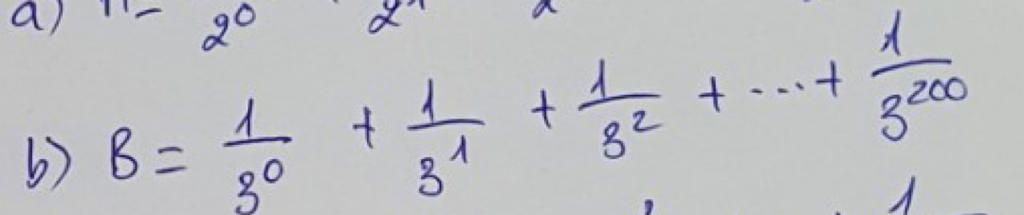 a)
2^0 2
b) B = 1/3^0 + 1/3^1 + 1/3^2 + ... + 1/3^200
1